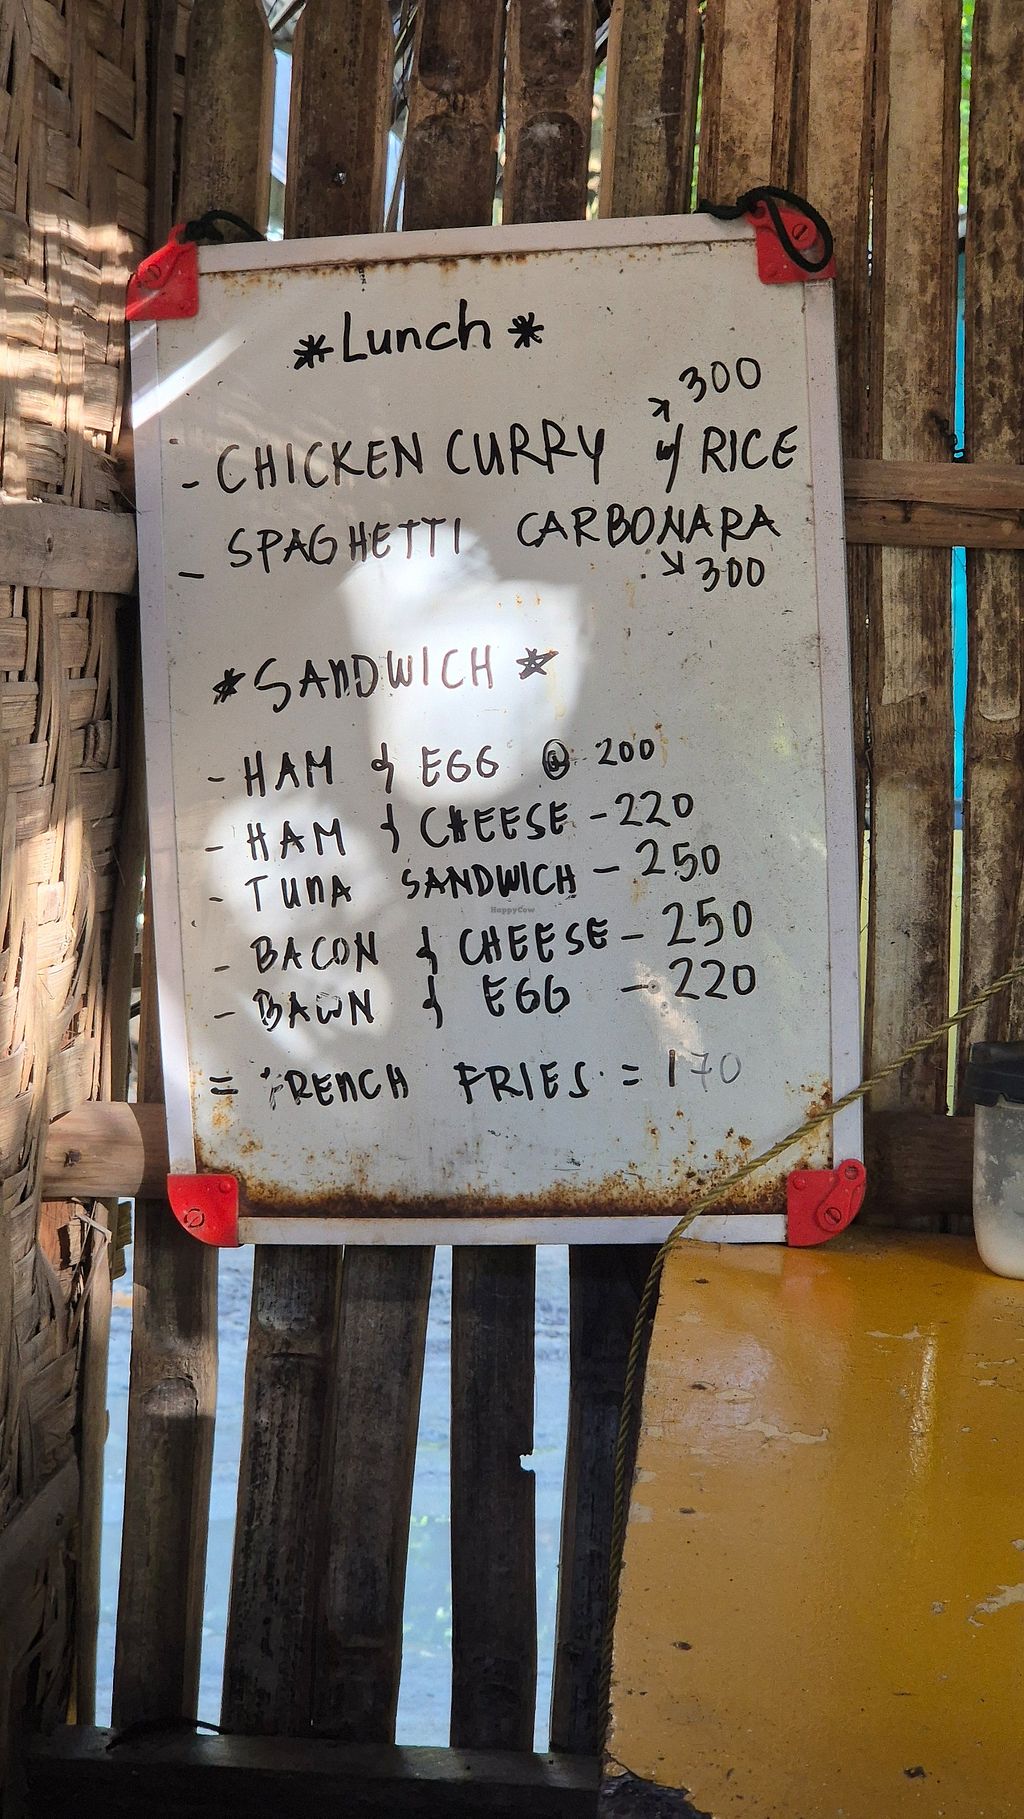 *Lunch*
300
- CHICKEN CURRY w/ RICE
- SPAGHETTI CARBONARA
300
*SANDWICH*
- HAM & EGG @ 200
- HAM & CHEESE - 220
- TUnA SANDWICH - 250
HappyCow
- BACON & CHEESE - 250
- BACON & EGG - 220
= FRENCH FRIES = 170